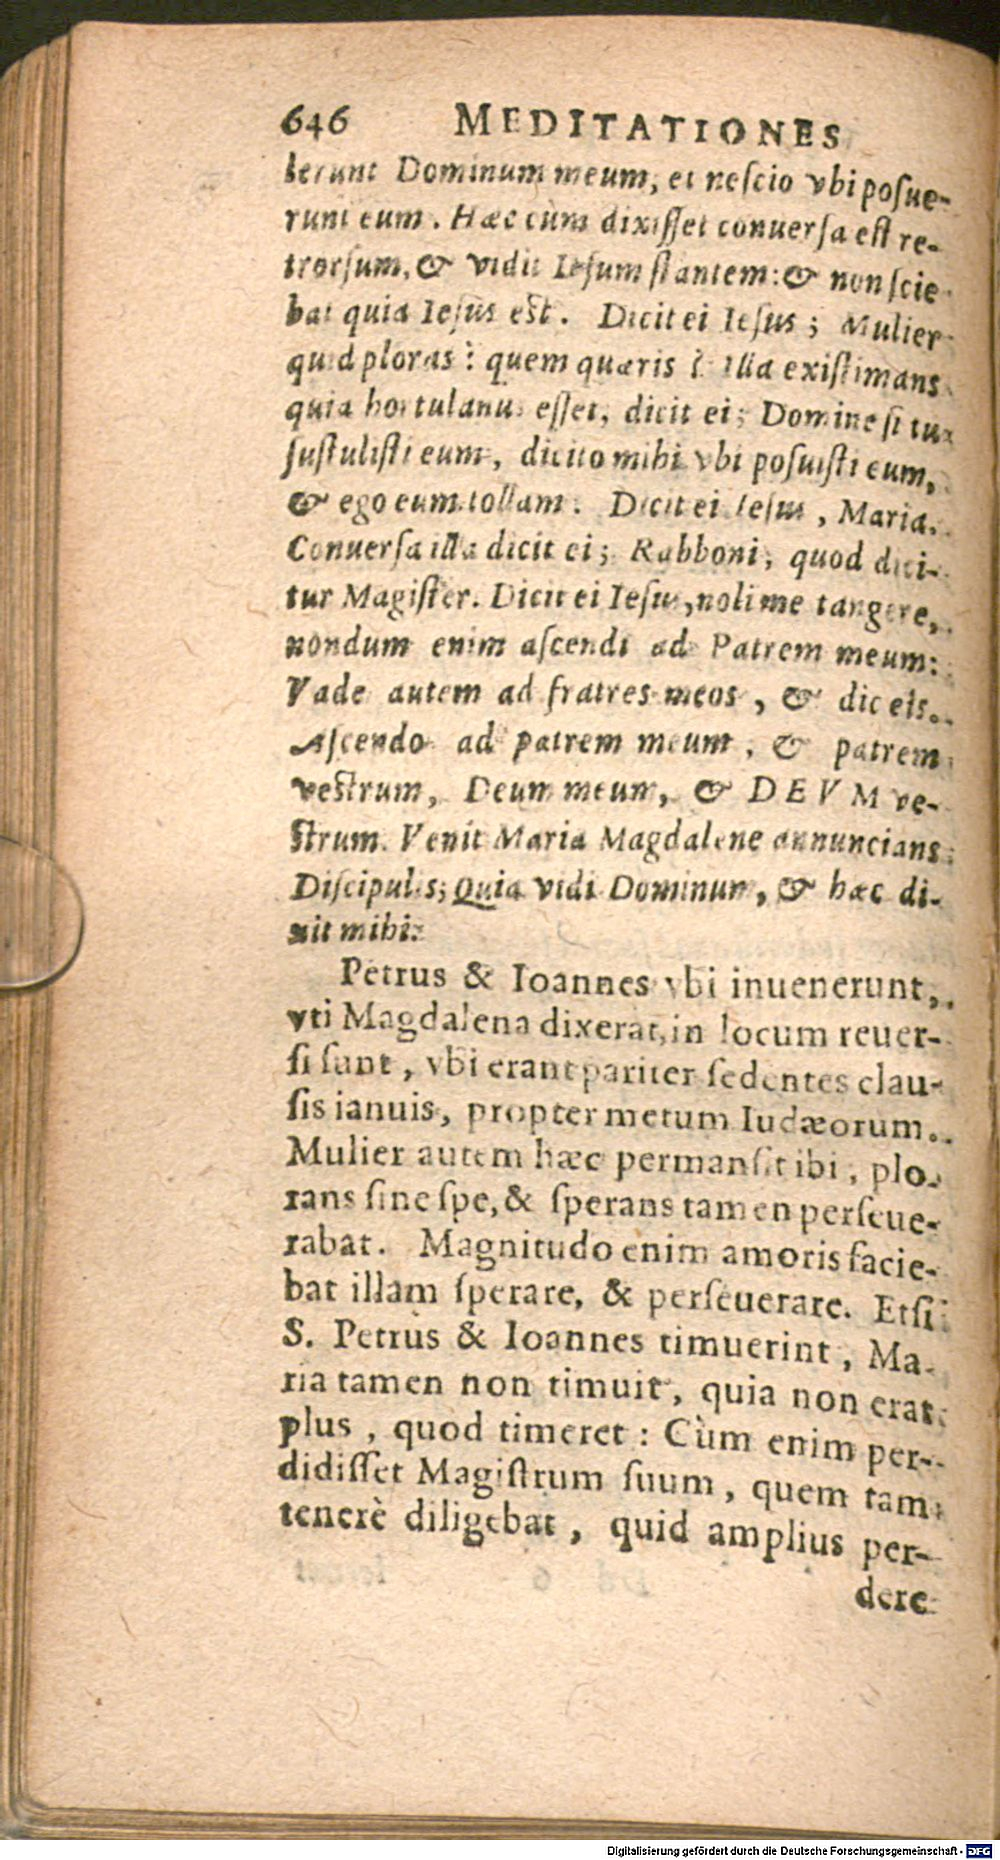 646 MEDITATIONES
lerunt Dominum meum, et nescio vbi posue-
runt eum. Hæc cùm dixisset conuersa est re-
trorsum, & vidit Iesum stantem: & non scie-
bat quia Iesus est. Dicit ei Iesus; Mulier
quid ploras? quem quæris? Illa existimans
quia hortulanus esset, dicit ei; Domine si tu
sustulisti eum, dicito mihi vbi posuisti eum,
& ego eum tollam. Dicit ei Iesus, Maria.
Conuersa illa dicit ei; Rabboni; quod dici-
tur Magister. Dicit ei Iesus, noli me tangere,
nondum enim ascendi ad Patrem meum:
Vade autem ad fratres meos, & dic eis.
Ascendo ad patrem meum, & patrem
vestrum, Deum meum, & DEVM ve-
strum. Venit Maria Magdalene annuncians
Discipulis; Quia vidi Dominum, & hæc di-
xit mihi.
Petrus & Ioannes vbi inuenerunt,
vti Magdalena dixerat, in locum reuer-
si sunt, vbi erant pariter sedentes clau-
sis ianuis, propter metum Iudæorum.
Mulier autem hæc permansit ibi, plo-
rans sine spe, & sperans tamen perseue-
rabat. Magnitudo enim amoris facie-
bat illam sperare, & perseuerare. Etsi
S. Petrus & Ioannes timuerint, Ma-
ria tamen non timuit, quia non erat
plus, quod timeret: Cùm enim per-
didisset Magistrum suum, quem tam
tenerè diligebat, quid amplius per-
dere
Digitalisierung gefördert durch die Deutsche Forschungsgemeinschaft - DFG